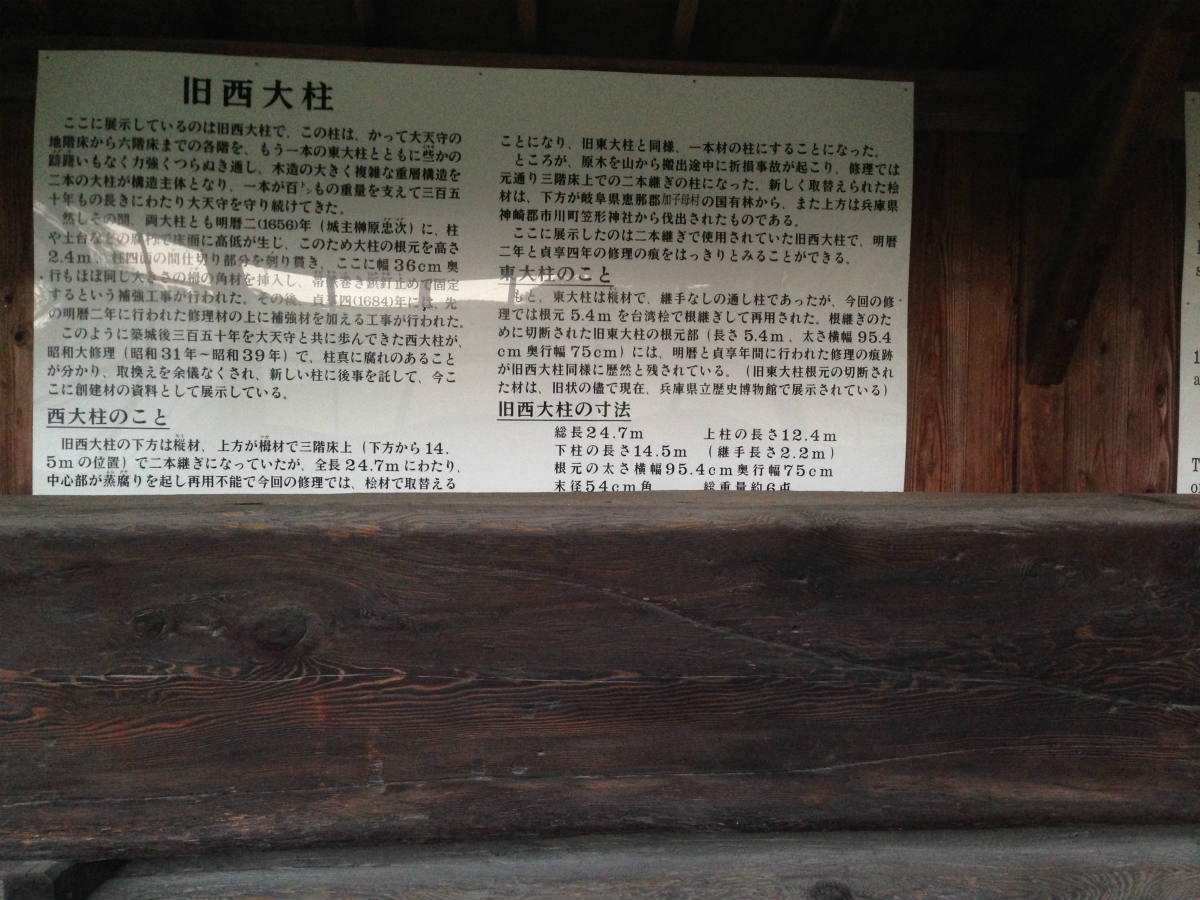 旧西大柱
ここに展示しているのは旧西大柱で、この柱は、かって大天守の
地階床から六階床までの各階を、もう一本の東大柱とともに些かの
躊躇いもなく力強くつらぬき通し、木造の大きく複雑な重層構造を
二本の大柱が構造主体となり、一本が百㌧もの重量を支えて三百五
十年もの長きにわたり大天守を守り続けてきた。
然しその間、両大柱とも明暦二(1656)年（城主榊原忠次）に、柱
や土台などの腐朽で床面に高低が生じ、このため大柱の根元を高さ
2.4m、柱四面の間仕切り部分を刳り貫き、ここに幅36cm奥
行もほぼ同じ大きさの栂の角材を挿入し、帯鉄巻き鋲釘止めで固定
するという補強工事が行われた。その後、貞享四(1684)年には、先
の明暦二年に行われた修理材の上に補強材を加える工事が行われた。
このように築城後三百五十年を大天守と共に歩んできた西大柱が、
昭和大修理（昭和31年～昭和39年）で、柱真に腐れのあること
が分かり、取換えを余儀なくされ、新しい柱に後事を託して、今こ
こに創建材の資料として展示している。
西大柱のこと
旧西大柱の下方は樅材、上方が栂材で三階床上（下方から14.
5mの位置）で二本継ぎになっていたが、全長24.7mにわたり、
中心部が蒸腐りを起し再用不能で今回の修理では、桧材で取替える
ことになり、旧東大柱と同様、一本材の柱にすることになった。
ところが、原木を山から搬出途中に折損事故が起こり、修理では
元通り三階床上での二本継ぎの柱になった。新しく取替えられた桧
材は、下方が岐阜県恵那郡加子母村の国有林から、また上方は兵庫県
神崎郡市川町笠形神社から伐出されたものである。
ここに展示したのは二本継ぎで使用されていた旧西大柱で、明暦
二年と貞享四年の修理の痕をはっきりとみることができる。
東大柱のこと
もと、東大柱は樅材で、継手なしの通し柱であったが、今回の修
理では根元5.4mを台湾桧で根継ぎして再用された。根継ぎのた
めに切断された旧東大柱の根元部（長さ5.4m、太さ横幅95.4
cm奥行幅75cm）には、明暦と貞享年間に行われた修理の痕跡
が旧西大柱同様に歴然と残されている。（旧東大柱根元の切断され
た材は、旧状の儘で現在、兵庫県立歴史博物館で展示されている）
旧西大柱の寸法
総長24.7m 上柱の長さ12.4m
下柱の長さ14.5m （継手長さ2.2m）
根元の太さ横幅95.4cm奥行幅75cm
末径54cm角 総重量約6屯